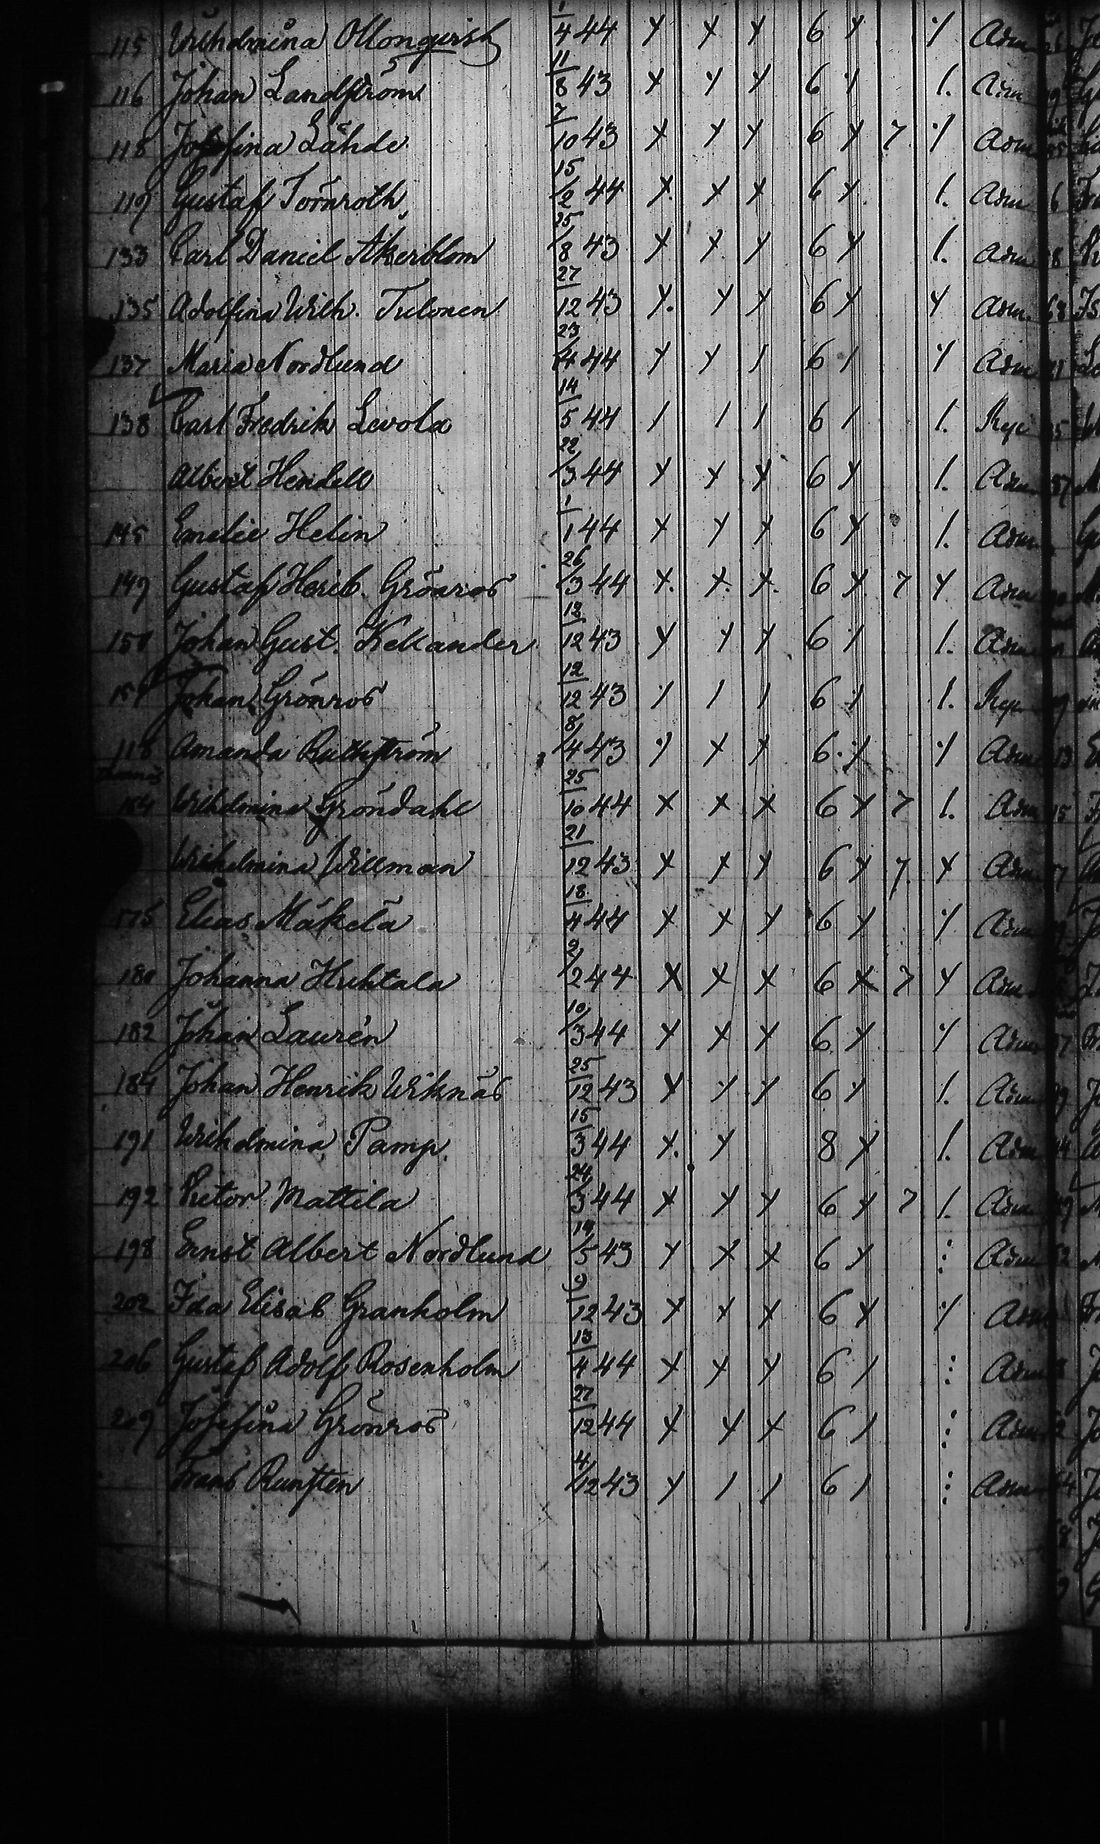 115 Wilhelmina Ollonqvist 1/4 44 x x x 6 x ⁒ Adm
116 Johan Landström 11/8 43 x x x 6 x 1. Adm
118 Josefina Lähde 7/10 43 x x x 6 x 7 ⁒ Adm
119 Gustaf Törnroth 15/2 44 x x x 6 x 1. Adm
133 Carl Daniel Åkerblom 25/8 43 x x x 6 x 1. Adm
135 Adolfina Wilh. Tulonen 27/12 43 x x x 6 x x Adm
137 Maria Nordlund 23/4 44 x x / 6 / x Adm
138 Carl Fredrik Levola 14/5 44 / / / 6 / 1. Rej
Albert Hendell 22/3 44 x x x 6 x 1. Adm
145 Emelie Helin 1/1 44 x x x 6 x 1. Adm
149 Gustaf Herib. Grönros 26/3 44 x x x 6 x 7 x Adm
150 Johan Gust. Kellander 12/12 43 x x x 6 / 1. Adm
Johan Grönros 12/12 43 / / / 6 / 1. Rej
118 Amanda Ruthström 8/4 43 x x x 6 x ⁒ Adm
164 Wilhelmina Gröndahl 25/10 44 x x x 6 x 7 1. Adm
Wilhelmina Willman 21/12 43 x x x 6 x 7 x Adm
175 Elias Mäkelä 18/4 44 x x x 6 x ⁒ Adm
180 Johanna Huhtala 2/2 44 x x x 6 x 7 x Adm
182 Johan Laurén 10/3 44 x x x 6 x ⁒ Adm
184 Johan Henrik Wiknäs 25/12 43 x x x 6 x 1. Adm
191 Wilhelmina Pamp 15/3 44 x x 8 x 1. Adm
192 Victor Mattila 24/3 44 x x x 6 x 7 1. Adm
198 Ernst Albert Nordlund 19/5 43 x x x 6 x : Adm
202 Ida Elisab Granholm 9/12 43 x x x 6 x ⁒ Adm
206 Gustaf Adolf Rosenholm 13/4 44 x x x 6 / : Adm
209 Josefina Grönros 27/12 44 x x x 6 / : Adm
Frans Runsten 4/12 43 x / / 6 / : Adm